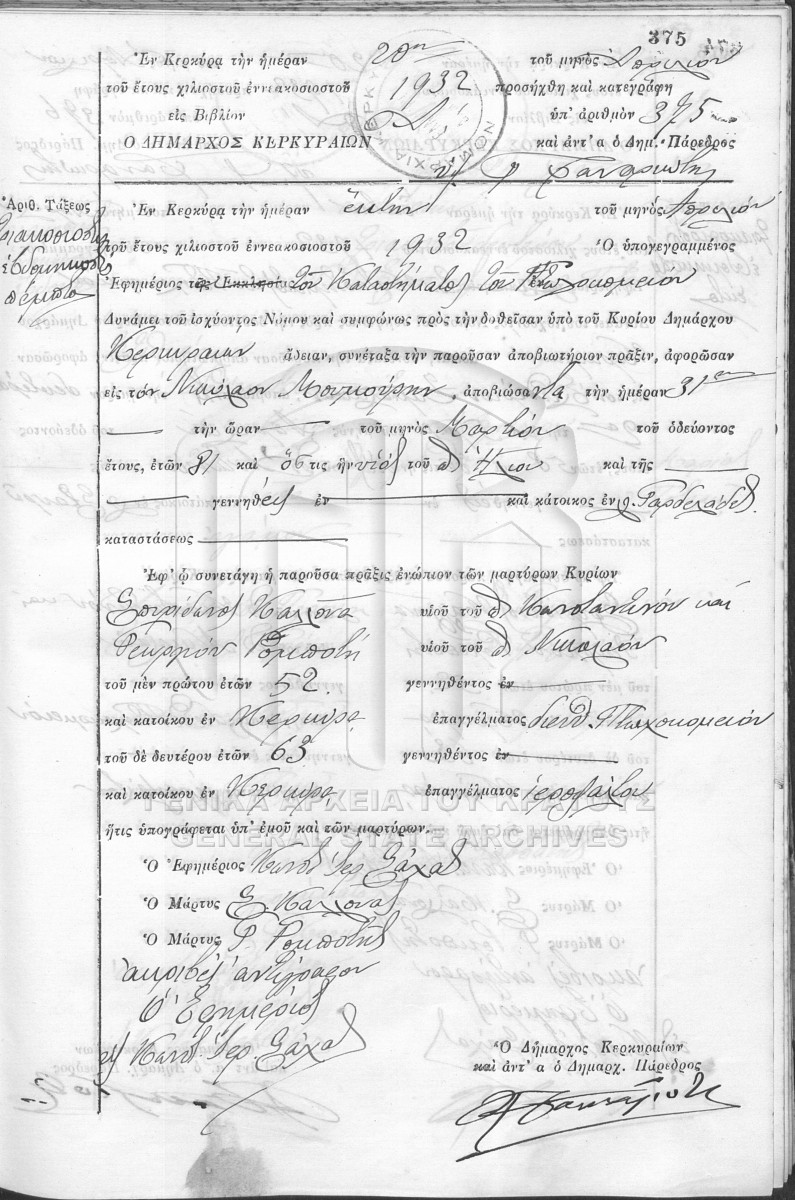 375
Ἐν Κερκύρᾳ τὴν ἡμέραν 20ην τοῦ μηνὸς Ἀπριλίου
τοῦ ἔτους χιλιοστοῦ ἐννεακοσιοστοῦ 1932 προσήχθη καὶ κατεγράφη
εἰς Βιβλίον ὑπ' ἀριθμὸν 375
Ο ΔΗΜΑΡΧΟΣ ΚΕΡΚΥΡΑΙΩΝ καὶ ἀντ' α ὁ Δημ. Πάρεδρος
ΝΟΜΑΡΧΙΑ ΚΕΡΚΥΡ
Ἀριθ. Τάξεως
Τριακοσιοστὸς
ἑβδομηκοστὸς
πέμπτος
Ἐν Κερκύρᾳ τὴν ἡμέραν ἕκτην τοῦ μηνὸς Ἀπριλίου
τοῦ ἔτους χιλιοστοῦ ἐννεακοσιοστοῦ 1932 Ὁ ὑπογεγραμμένος
Ἐφημέριος τῆς Ἐκκλησίας τοῦ Καταστήματος τοῦ Πτωχοκομείου
Δυνάμει τοῦ ἰσχύοντος Νόμου καὶ συμφώνως πρὸς τὴν δοθεῖσαν ὑπὸ τοῦ Κυρίου Δημάρχου
Κερκυραίων ἄδειαν, συνέταξα τὴν παροῦσαν ἀποβιωτήριον πρᾶξιν, ἀφορῶσαν
εἰς τὸν Νικόλαον Μουμούρην, ἀποβιώσαντα τὴν ἡμέραν 31ην
τὴν ὥραν τοῦ μηνὸς Μαρτίου τοῦ ὁδεύοντος
ἔτους, ἐτῶν 81 καὶ ὅστις ἦν υἱὸς τοῦ Ἠλίου καὶ τῆς
γεννηθεὶς ἐν καὶ κάτοικος ἐν Γαρδελάδες
καταστάσεως
Ἐφ' ᾧ συνετάγη ἡ παροῦσα πρᾶξις ἐνώπιον τῶν μαρτύρων Κυρίων
Σπυρίδωνος Καλλονᾶ υἱοῦ τοῦ Κωνσταντίνου καὶ
Γεωργίου Ρομποτῆ υἱοῦ τοῦ Νικολάου
τοῦ μὲν πρώτου ἐτῶν 52 γεννηθέντος ἐν
καὶ κατοίκου ἐν Κερκύρᾳ ἐπαγγέλματος διευθ. Πτωχοκομείου
τοῦ δὲ δευτέρου ἐτῶν 63 γεννηθέντος ἐν
καὶ κατοίκου ἐν Κερκύρᾳ ἐπαγγέλματος ἱεροψάλτου
ΓΕΝΙΚΑ ΑΡΧΕΙΑ ΤΟΥ ΚΡΑΤΟΥΣ
ἥτις ὑπογράφεται ὑπ' ἐμοῦ καὶ τῶν μαρτύρων.
GENERAL STATE ARCHIVES
Ὁ Ἐφημέριος Κωνστ Ἱερ. Σάχας
Ὁ Μάρτυς Σ. Καλλονᾶς
Ὁ Μάρτυς Γ. Ρομποτῆς
ἀκριβὲς ἀντίγραφον
Ὁ Ἐφημέριος
Κωνστ Ἱερ. Σάχας
Ὁ Δήμαρχος Κερκυραίων
καὶ ἀντ' α ὁ Δημαρχ. Πάρεδρος